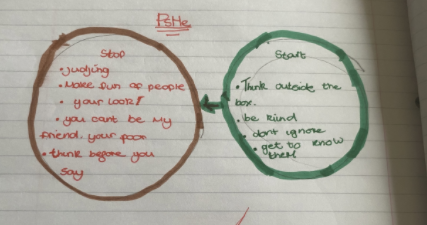 PsHe
Stop
• Judging
• Make fun of people
• your look!
• you cant be my
friend. your poor
• think before you
say
Start
• Think outside the
box.
• be kind
• dont ignore
• get to know
them